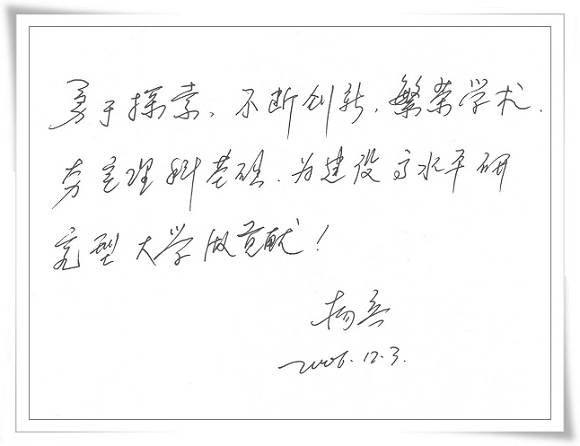 勇于探索、不断创新,繁荣学术,
夯实理科基础,为建设高水平研
究型大学做贡献!
杨
2006.12.3.